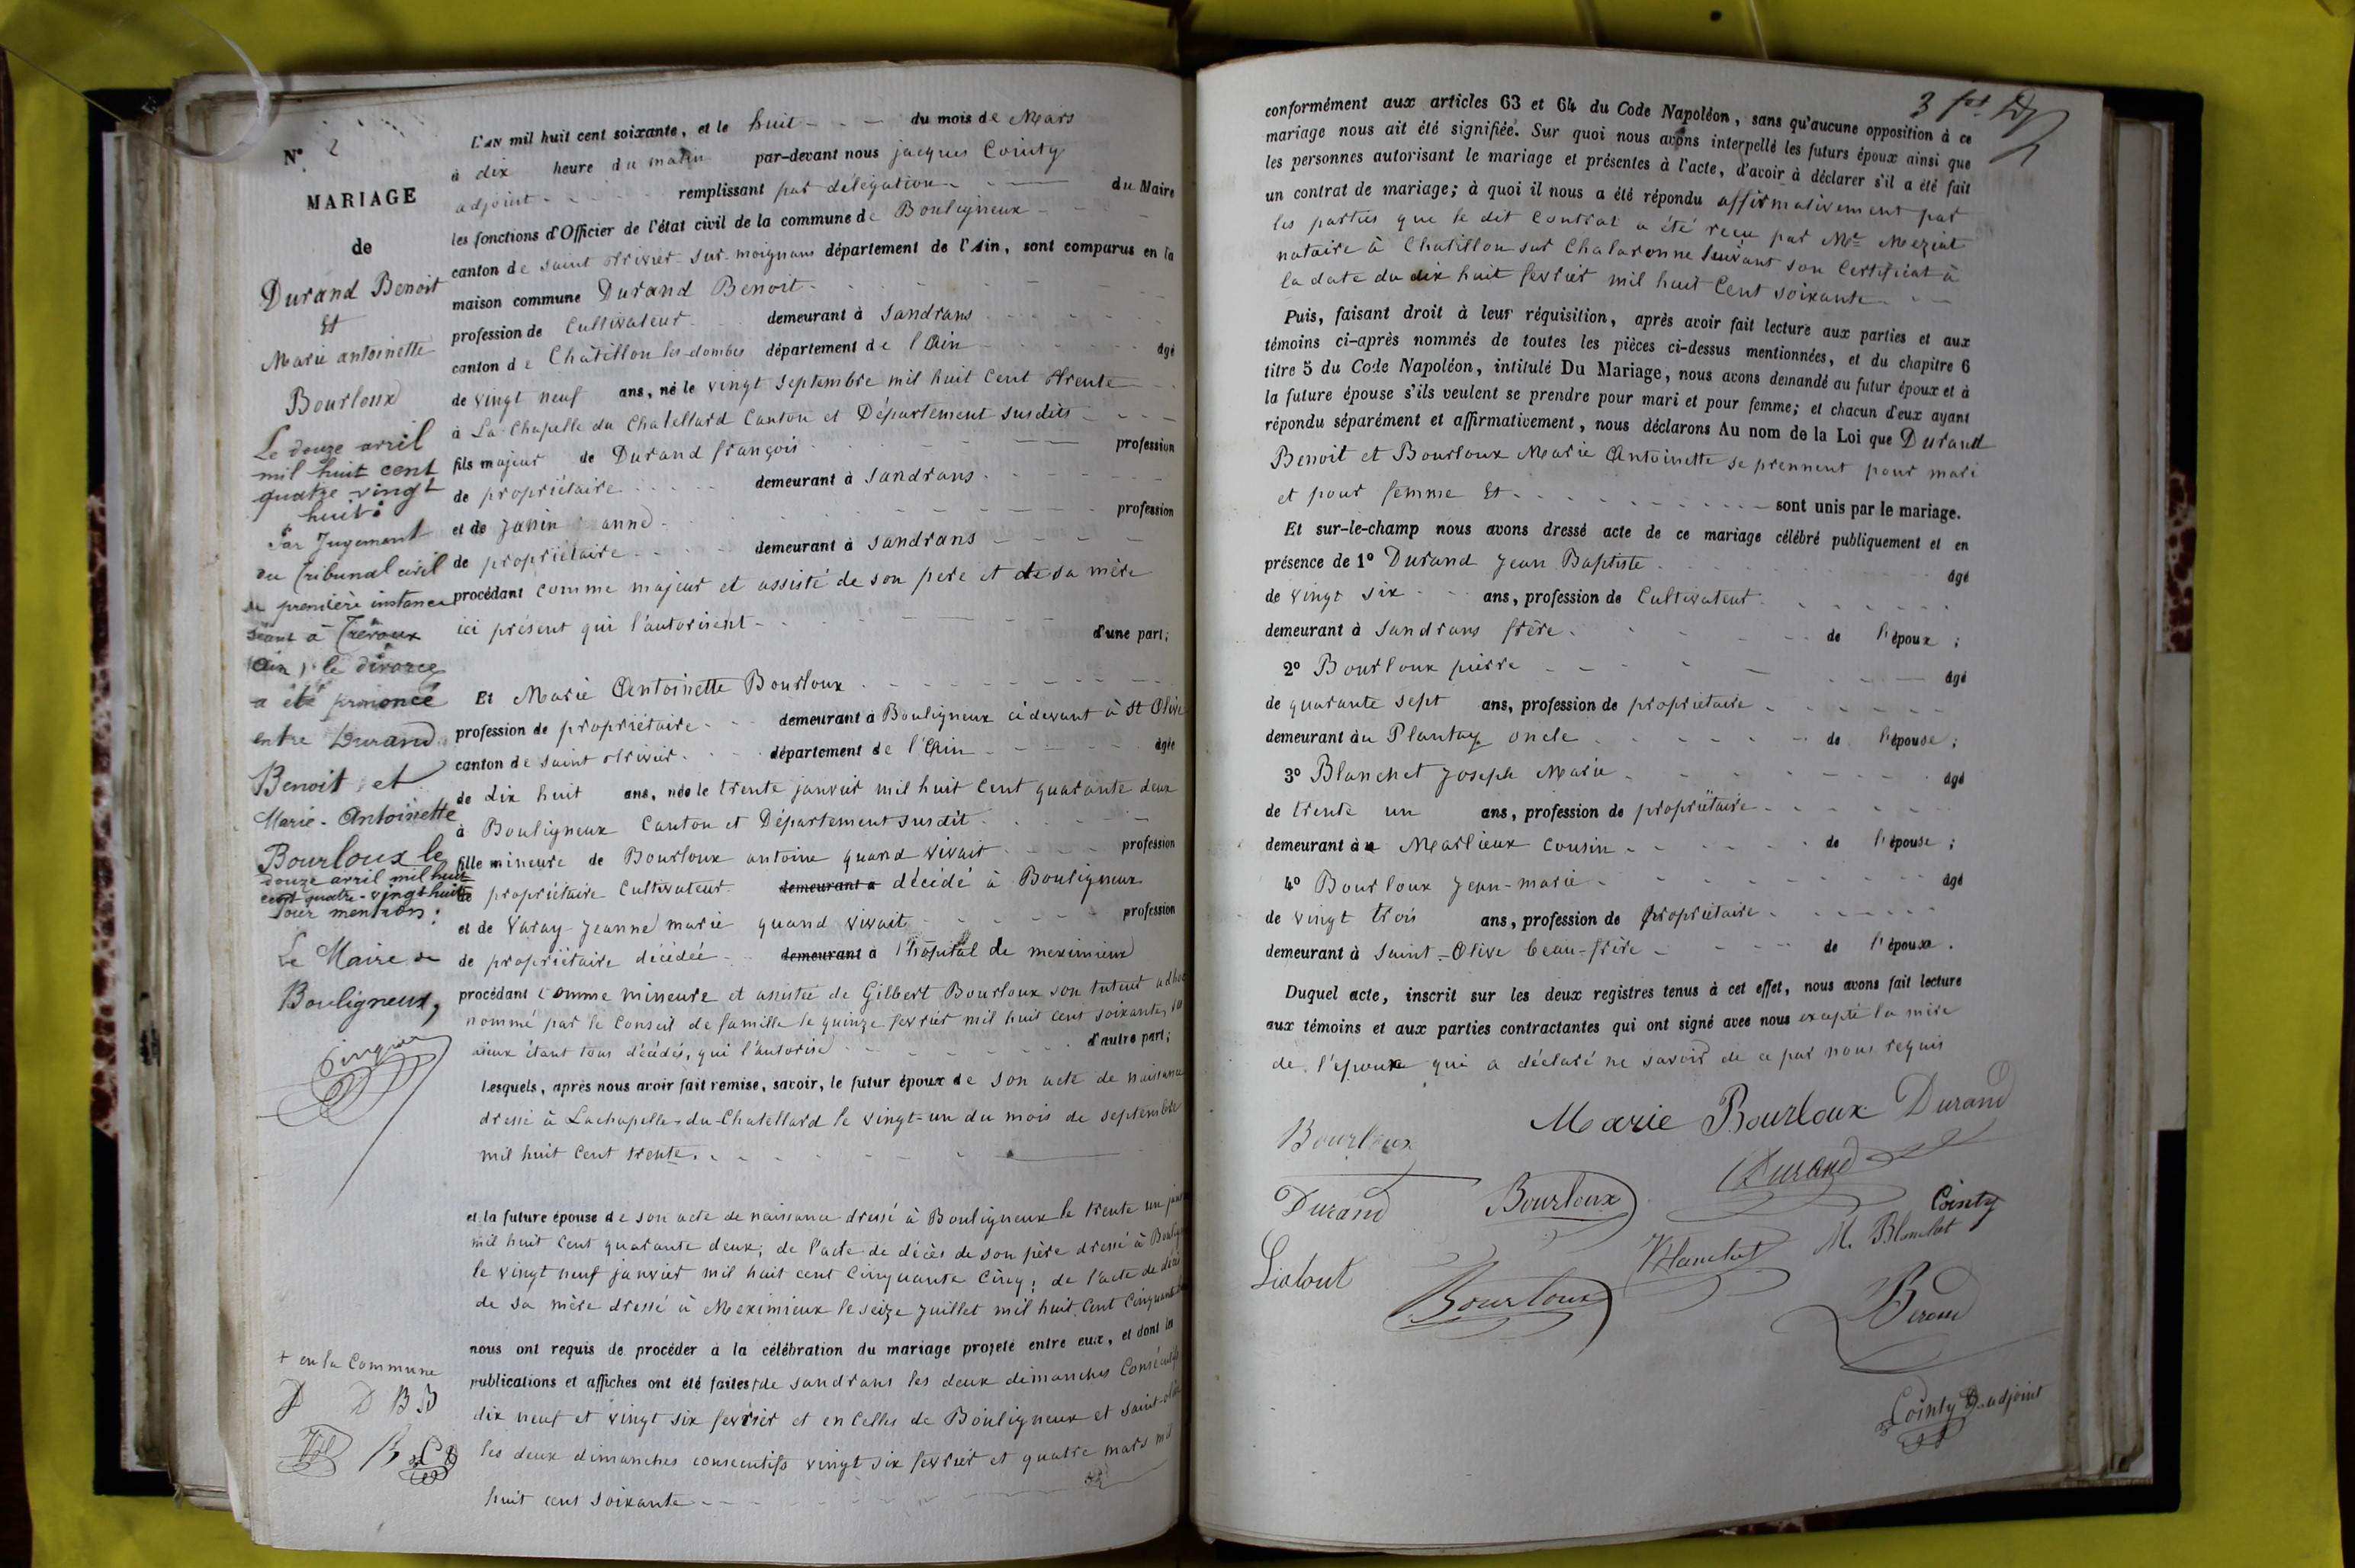 N° 2
MARIAGE
de
Durand Benoit
Et
Marie antoinette
Bourloux
Le douze avril
mil huit cent
quatre vingt
huit.
Par Jugement
du Tribunal civil
de première instance
séant à Trévoux
(Ain) le divorce
a été prononcé
entre Durand
Benoit et
Marie-Antoinette
Bourloux le
douze avril mil huit
cent quatre-vingt huit
Pour mention:
Le Maire de
Bouligneux,
+ en la Commune
D D B B
L'AN mil huit cent soixante, et le huit du mois de Mars
à dix heure du matin par-devant nous jacques Cointy
adjoint remplissant par délégation du Maire
les fonctions d'Officier de l'état civil de la commune de Bouligneux
canton de saint trivier-sur-moignans département de l'Ain, sont comparus en la
maison commune Durand Benoit
profession de Cultivateur demeurant à Sandrans
canton de Châtillon les-dombes département de l'Ain âgé
de vingt neuf ans, né le vingt septembre mil huit cent trente
à La Chapelle du Chatellard Canton et Département susdits
fils majeur de Durand françois profession
de propriétaire demeurant à Sandrans
et de Janin anne profession
de propriétaire demeurant à Sandrans
procédant comme majeur et assisté de son pere et de sa mère
ici présent qui l'autorisent d'une part;
Et Marie Antoinette Bourloux
profession de propriétaire demeurant à Bouligneux ci devant à St Olive
canton de saint trivier département de l'Ain âgée
de dix huit ans, née le trente janvier mil huit cent quarante deux
à Bouligneux Canton et Département susdit
fille mineure de Bourloux antoine quand vivait profession
de propriétaire Cultivateur demeurant à décédé à Bouligneux
et de Varay Jeanne marie quand vivait profession
de propriétaire décédée demeurant à l'hôpital de meximieux
procédant comme mineure et assistée de Gilbert Bourloux son tuteur adhoc
nommé par le Conseil de famille le quinze fevrier mil huit cent soixante, les
aïeux étant tous décédés, qui l'autorise d'autre part;
Lesquels, après nous avoir fait remise, savoir, le futur époux de son acte de naissance
dressé à Lachapelle-du-Chatellard le vingt-un du mois de septembre
mil huit cent trente.
et la future épouse de son acte de naissance dressé à Bouligneux le trente un
mil huit cent quarante deux; de l'acte de décès de son père dressé à
le vingt neuf janvier mil huit cent cinquante cinq; de l'acte de décès
de sa mère dressé à Meximieux le seize juillet mil huit cent
nous ont requis de procéder à la célébration du mariage projeté entre eux, et dont les
publications et affiches ont été faites + de sandrans les deux dimanches Consécutifs
dix neuf et vingt six fevrier et en celles de Bouligneux et saint-olive
les deux dimanches consecutifs vingt six fevrier et quatre mars mil
huit cent soixante
3
conformément aux articles 63 et 64 du Code Napoléon, sans qu'aucune opposition à ce
mariage nous ait été signifiée. Sur quoi nous avons interpellé les futurs époux ainsi que
les personnes autorisant le mariage et présentes à l'acte, d'avoir à déclarer s'il a été fait
un contrat de mariage; à quoi il nous a été répondu affirmativement par
les parties que le dit Contrat a été reçu par Me Meziat
notaire à Chatillon sur Chalaronne suivant son certificat à
la date du dix huit fevrier mil huit Cent soixante
Puis, faisant droit à leur réquisition, après avoir fait lecture aux parties et aux
témoins ci-après nommés de toutes les pièces ci-dessus mentionnées, et du chapitre 6
titre 5 du Code Napoléon, intitulé Du Mariage, nous avons demandé au futur époux et à
la future épouse s'ils veulent se prendre pour mari et pour femme; et chacun d'eux ayant
répondu séparément et affirmativement, nous déclarons Au nom de la Loi que Durand
Benoit et Bourloux Marie Antoinette se prennent pour mari
et pour femme Et sont unis par le mariage.
Et sur-le-champ nous avons dressé acte de ce mariage célébré publiquement et en
présence de 1° Durand Jean Baptiste âgé
de vingt six ans, profession de Cultivateur
demeurant à Sandrans frère de l'époux;
2° Bourloux pierre âgé
de quarante sept ans, profession de propriétaire
demeurant au Plantay oncle de l'épouse;
3° Blanchet Joseph Marie âgé
de trente un ans, profession de propriétaire
demeurant à Marlieux Cousin de l'épouse;
4° Bourloux Jean-marie âgé
de vingt trois ans, profession de propriétaire
demeurant à Saint-Olive beau-frère de l'épouse.
Duquel acte, inscrit sur les deux registres tenus à cet effet, nous avons fait lecture
aux témoins et aux parties contractantes qui ont signé avec nous excepté la mère
de l'époux qui a déclaré ne savoir de ce par nous requis
Marie Bourloux Durand
Bourloux
Durand
Durand Bourloux Cointy
M. Blanchet
Bourloux
Cointy adjoint